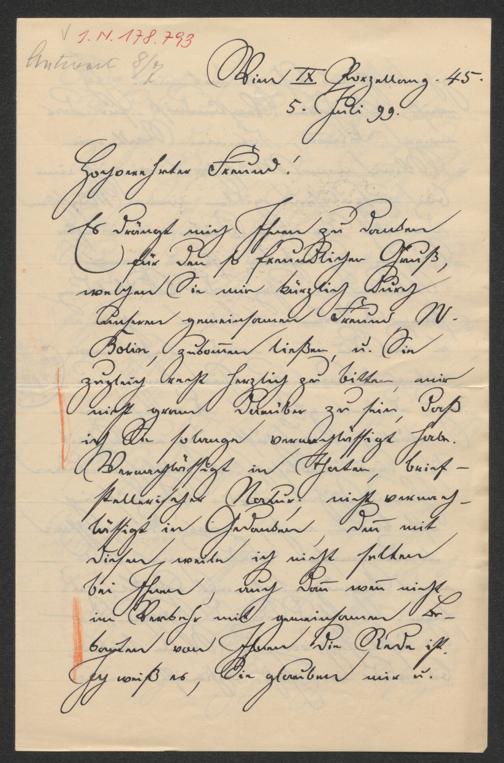 I. N. 178.793
Antwort 8/7
Wien IX Porzellang. 45.
5. Juli 99.
Hochverehrter Freund!
Es drängt mich Ihnen zu danken
für den so freundlichen Gruß,
welchen Sie mir kürzlich durch
unseren gemeinsamen Freund, W.
Bolin, zukom̄en ließen, u. Sie
zugleich recht herzlich zu bitten, mir
nicht gram darüber zu sein, daß
ich Sie solange vernachlässigt habe.
Vernachlässigt in Thaten, brief-
stellerischer Natur, nicht vernach-
lässigt in Gedanken, den̄ mit
diesen weile ich nicht selten
bei Ihnen, auch dan̄ wen̄ nicht
im Verkehr mit gemeinsamen Be-
kan̄ten von Ihnen die Rede ist.
Ich weiß es, Sie glauben mir u.